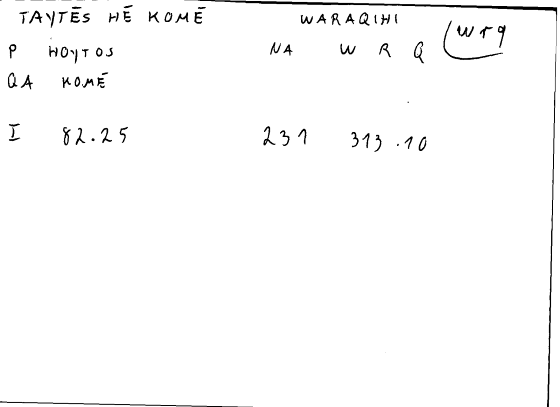 TAYTĒS HĒ KOMĒ WARAQIHI wrq
P HOYTOS NA W R Q
QA KOMĒ
I 82.25 231 313.10